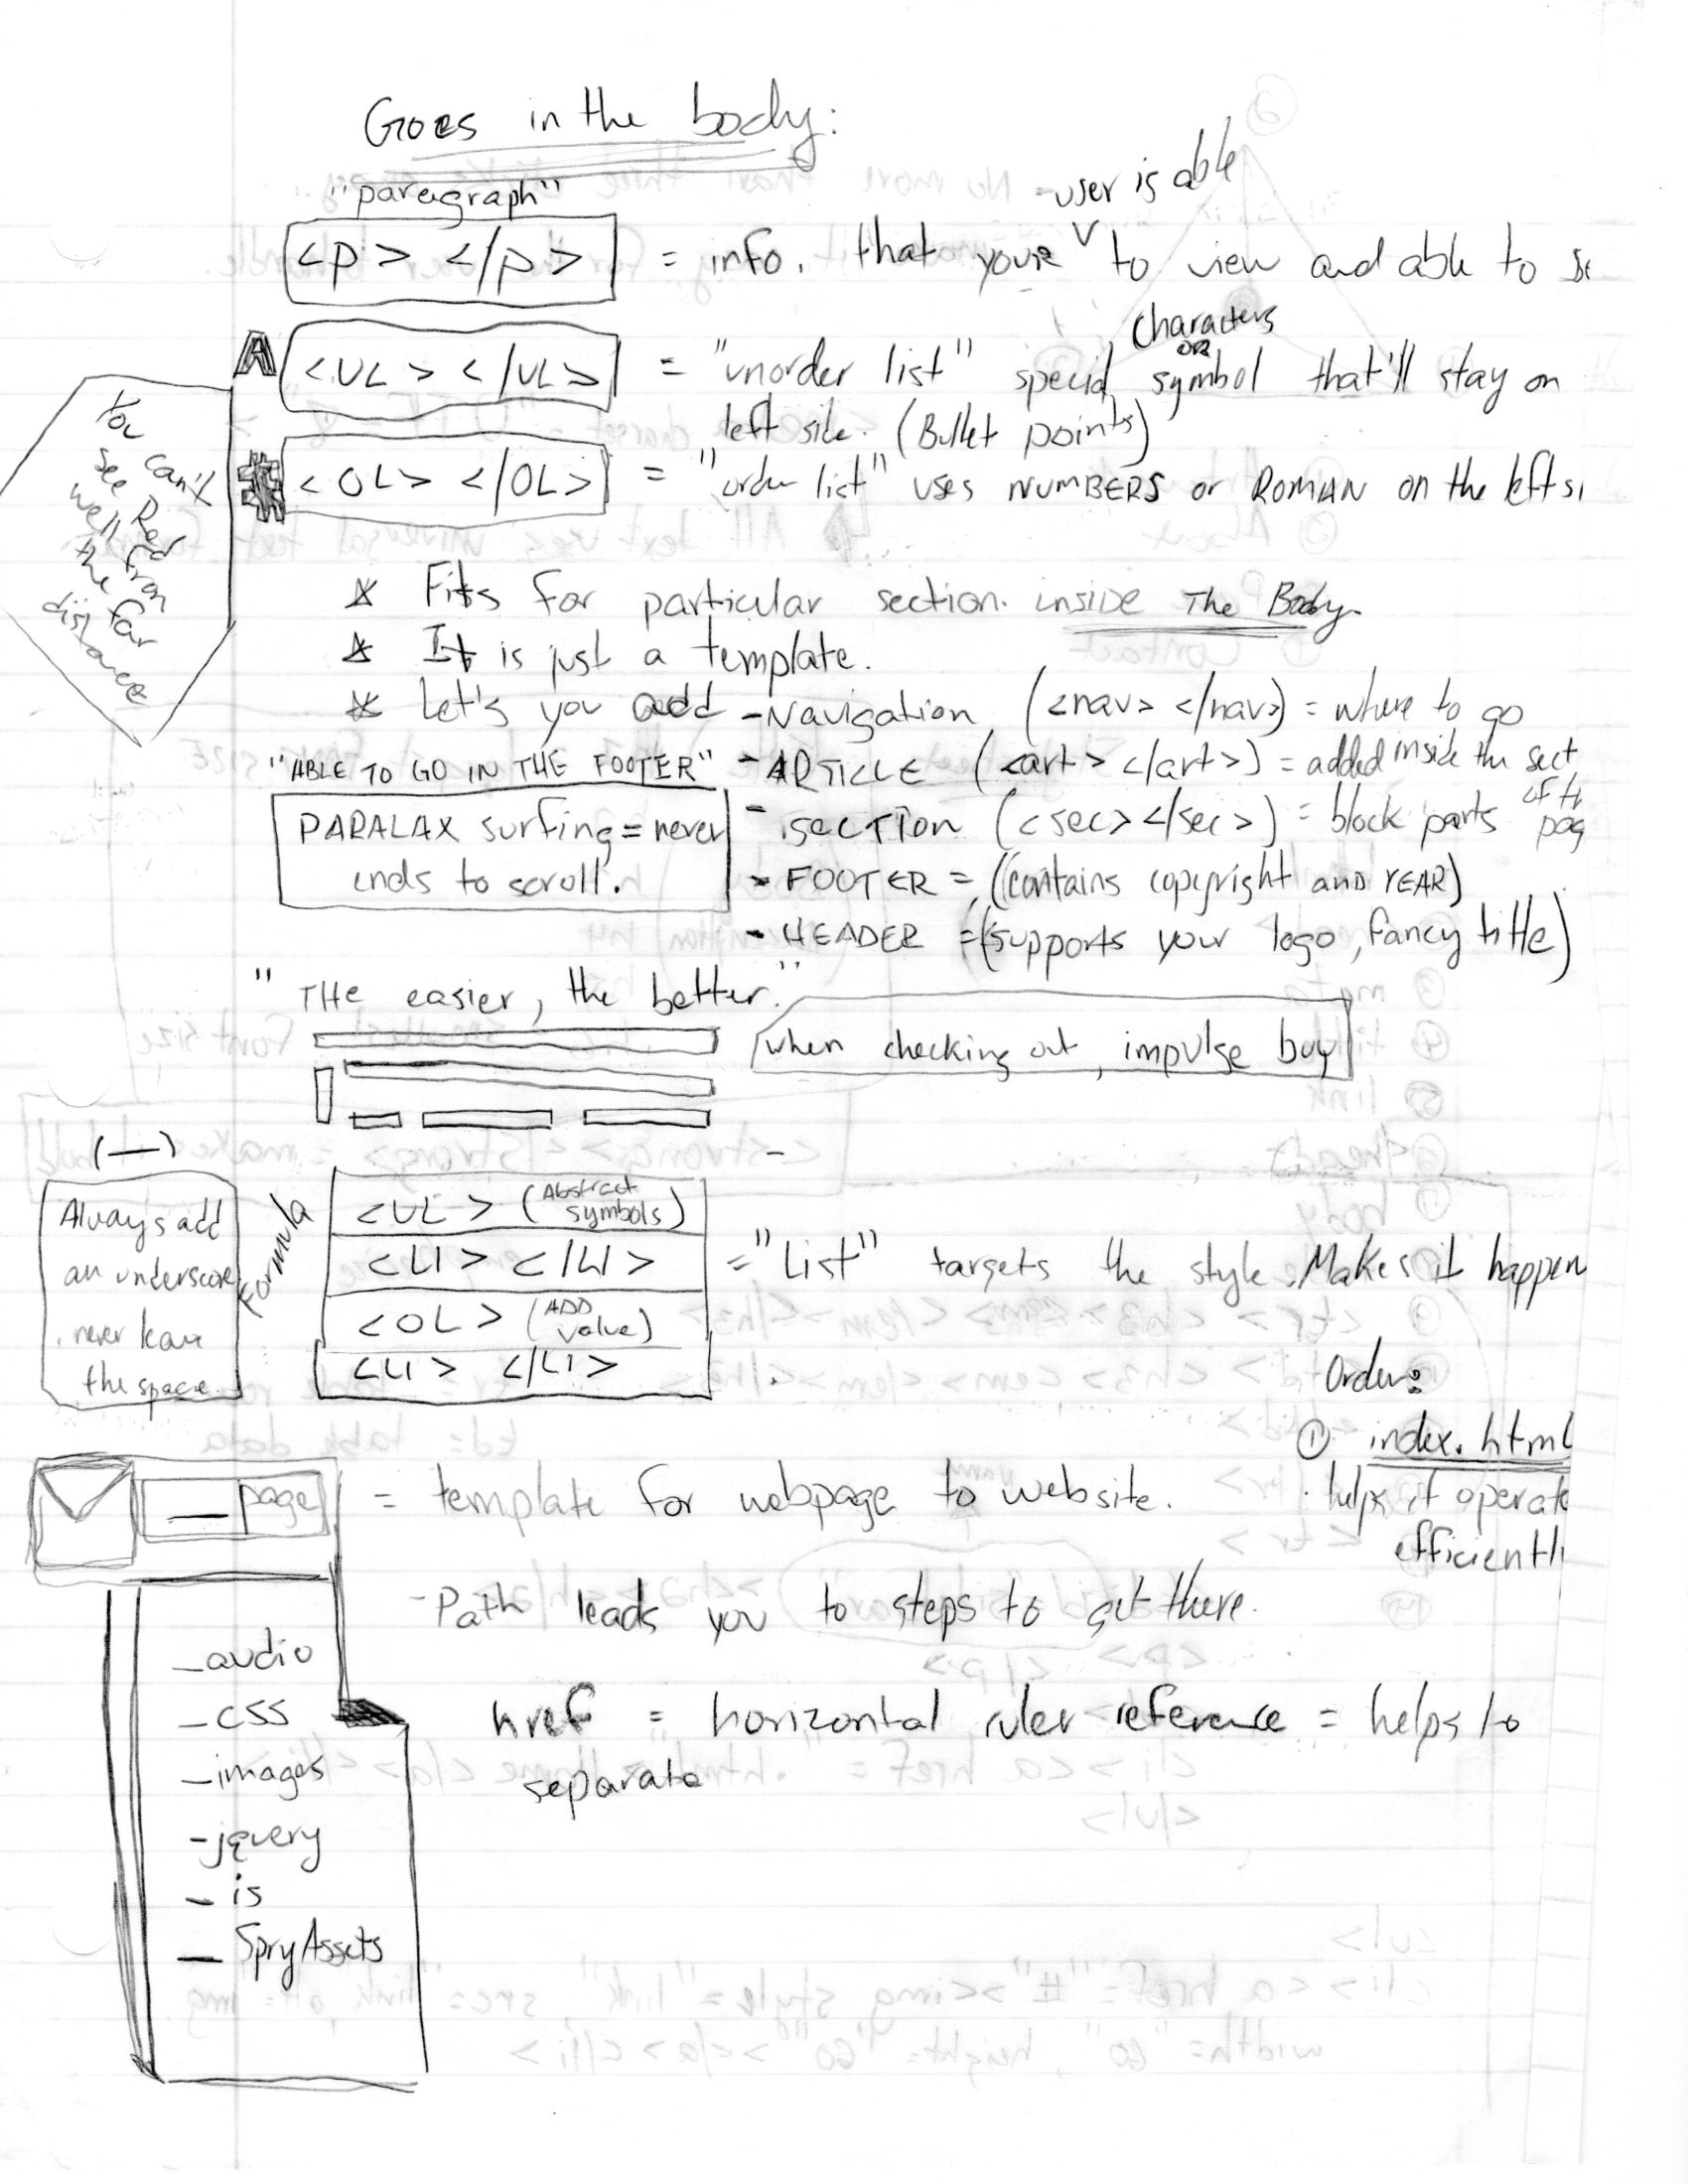 Goes in the body:
"paragraph"
-user is able
<p> </p> = info. that you're v to view and able to se
Characters
OR
A <UL> </UL> = "unorder list" special symbol that'll stay on
left side. (Bullet points)
# <OL> </OL> = "order list" uses NUMBERS or ROMAN on the left si
You can't
see Red
well from
the far
distance
* Fits for particular section. inside The Body.
* It is just a template.
* Let's you add - Navigation (<nav> </nav>) = where to go
"ABLE TO GO IN THE FOOTER" - ARTICLE (<art> </art>) = added inside the sect
PARALAX surfing = never
ends to scroll.
- SECTION (<sec> </sec>) = block parts of th
pag
- FOOTER = (contains copyright AND YEAR)
- HEADER = (supports your logo, fancy title)
"THe easier, the better."
when checking out, impulse buy
(—)
Always add
an underscore
, never leave
the space.
Formula
<UL> (Abstract
symbols)
<LI> </LI> = "List" targets the style. Makes it happen
<OL> (ADD
value)
<LI> </LI>
Order:
① index.html
. helps it operate
efficientl
_ page = template for webpage to website.
- Path leads you to steps to get there.
_audio
_css
_images
-jquery
_ is
_ SpryAssets
href = horizontal ruler reference = helps to
separate